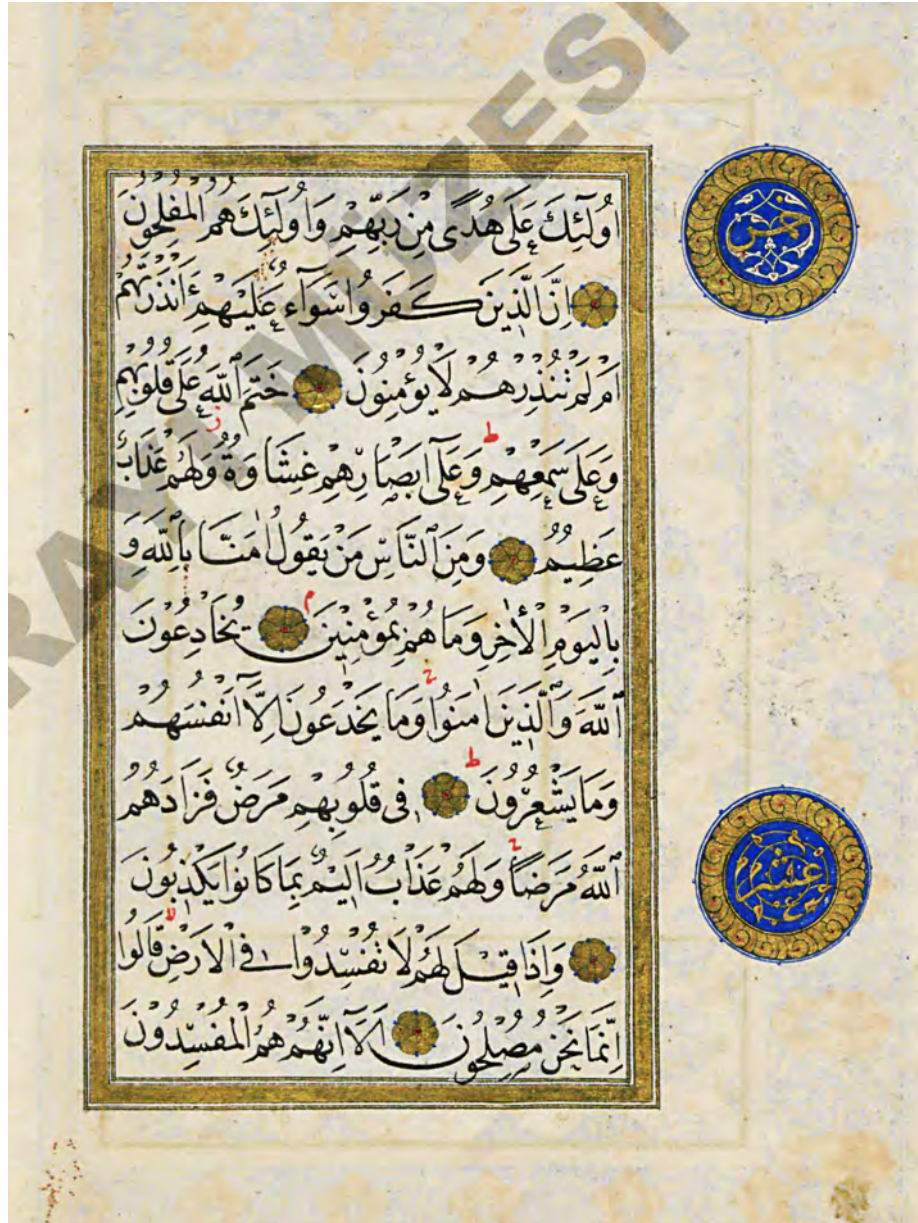 اُولٰٓئِكَ عَلٰى هُدًى مِنْ رَبِّهِمْ وَاُولٰٓئِكَ هُمُ الْمُفْلِحُونَ
اِنَّ الَّذِينَ كَفَرُوا سَوَآءٌ عَلَيْهِمْ ءَاَنْذَرْتَهُمْ
اَمْ لَمْ تُنْذِرْهُمْ لَا يُؤْمِنُونَ خَتَمَ اللّٰهُ عَلٰى قُلُوبِهِمْ
وَعَلٰى سَمْعِهِمْ وَعَلٰٓى اَبْصَارِهِمْ غِشَاوَةٌ وَلَهُمْ عَذَابٌ
عَظِيمٌ وَمِنَ النَّاسِ مَنْ يَقُولُ اٰمَنَّا بِاللّٰهِ وَ
بِالْيَوْمِ الْاٰخِرِ وَمَا هُمْ بِمُؤْمِنِينَ يُخَادِعُونَ
اللّٰهَ وَالَّذِينَ اٰمَنُوا وَمَا يَخْدَعُونَ اِلَّآ اَنْفُسَهُمْ
وَمَا يَشْعُرُونَ فِى قُلُوبِهِمْ مَرَضٌ فَزَادَهُمُ
اللّٰهُ مَرَضًا وَلَهُمْ عَذَابٌ اَلِيمٌ بِمَا كَانُوا يَكْذِبُونَ
وَاِذَا قِيلَ لَهُمْ لَا تُفْسِدُوا فِى الْاَرْضِ قَالُوا
اِنَّمَا نَحْنُ مُصْلِحُونَ اَلَآ اِنَّهُمْ هُمُ الْمُفْسِدُونَ
خمس
عشر
RAYI MÜZESİ